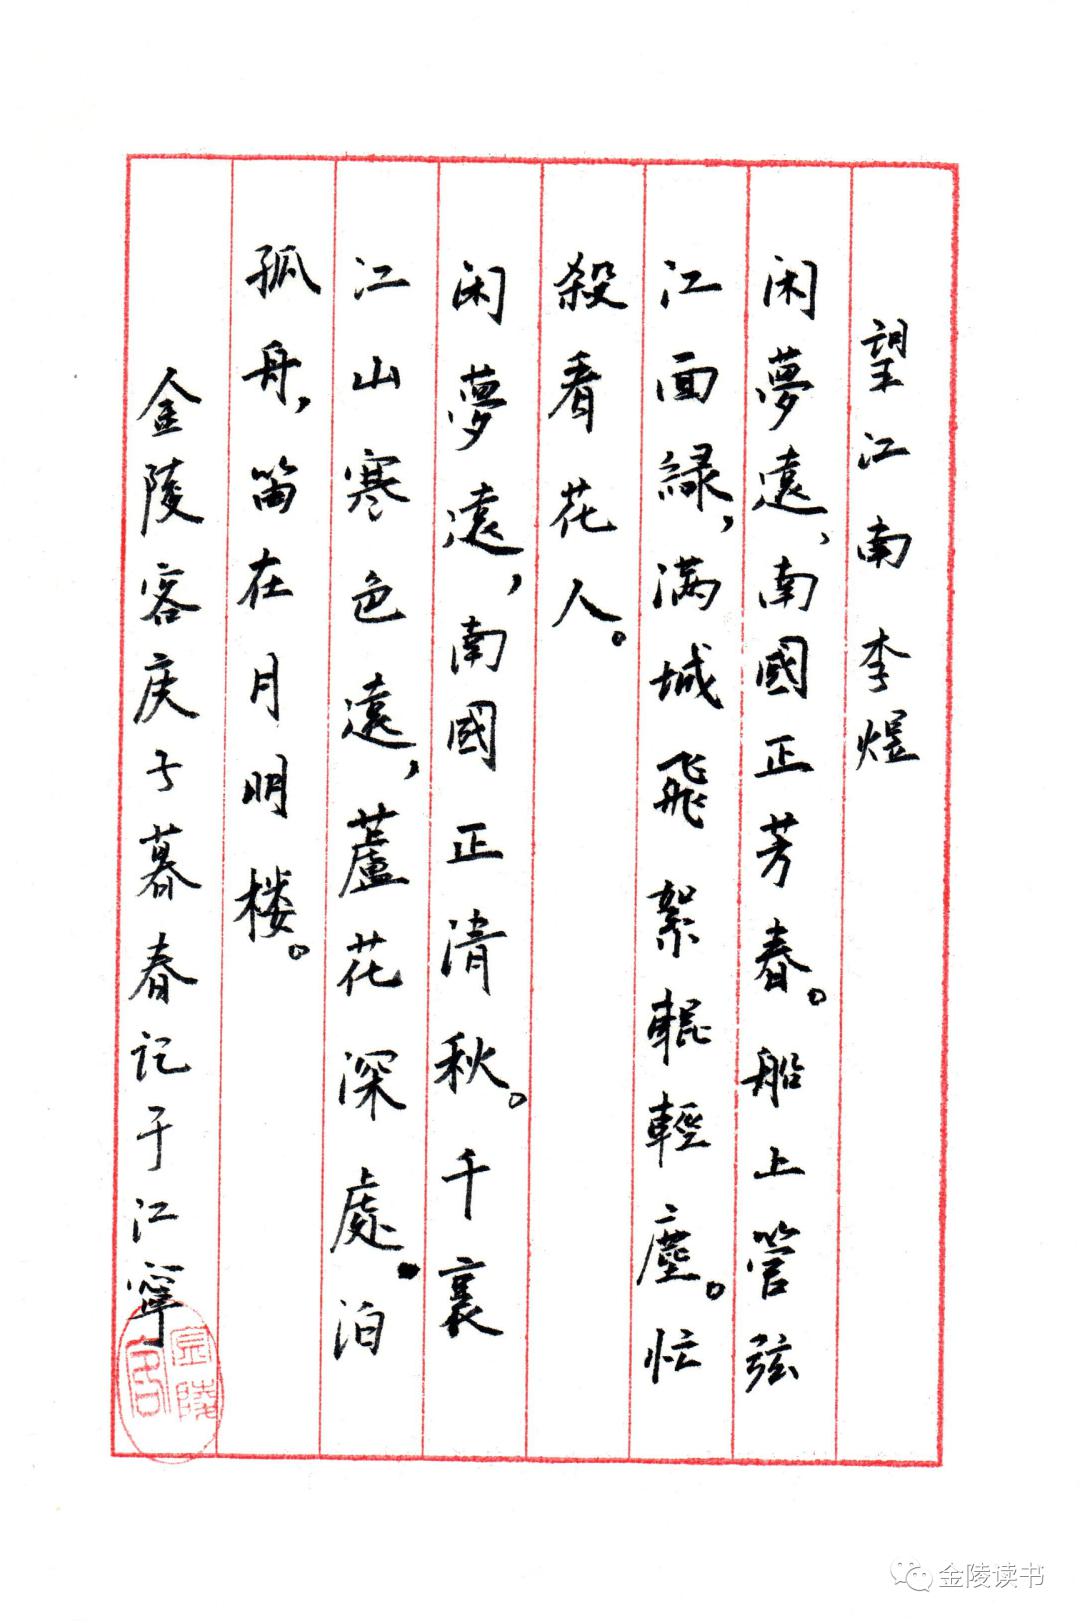 望江南 李煜
闲夢遠、南國正芳春。船上管弦
江面緑,满城飛絮輥輕塵。忙
殺看花人。
闲夢遠,南國正清秋。千裏
江山寒色遠,蘆花深處。泊
孤舟,笛在月明楼。
金陵客庚子暮春記于江寧
金陵客
金陵读书